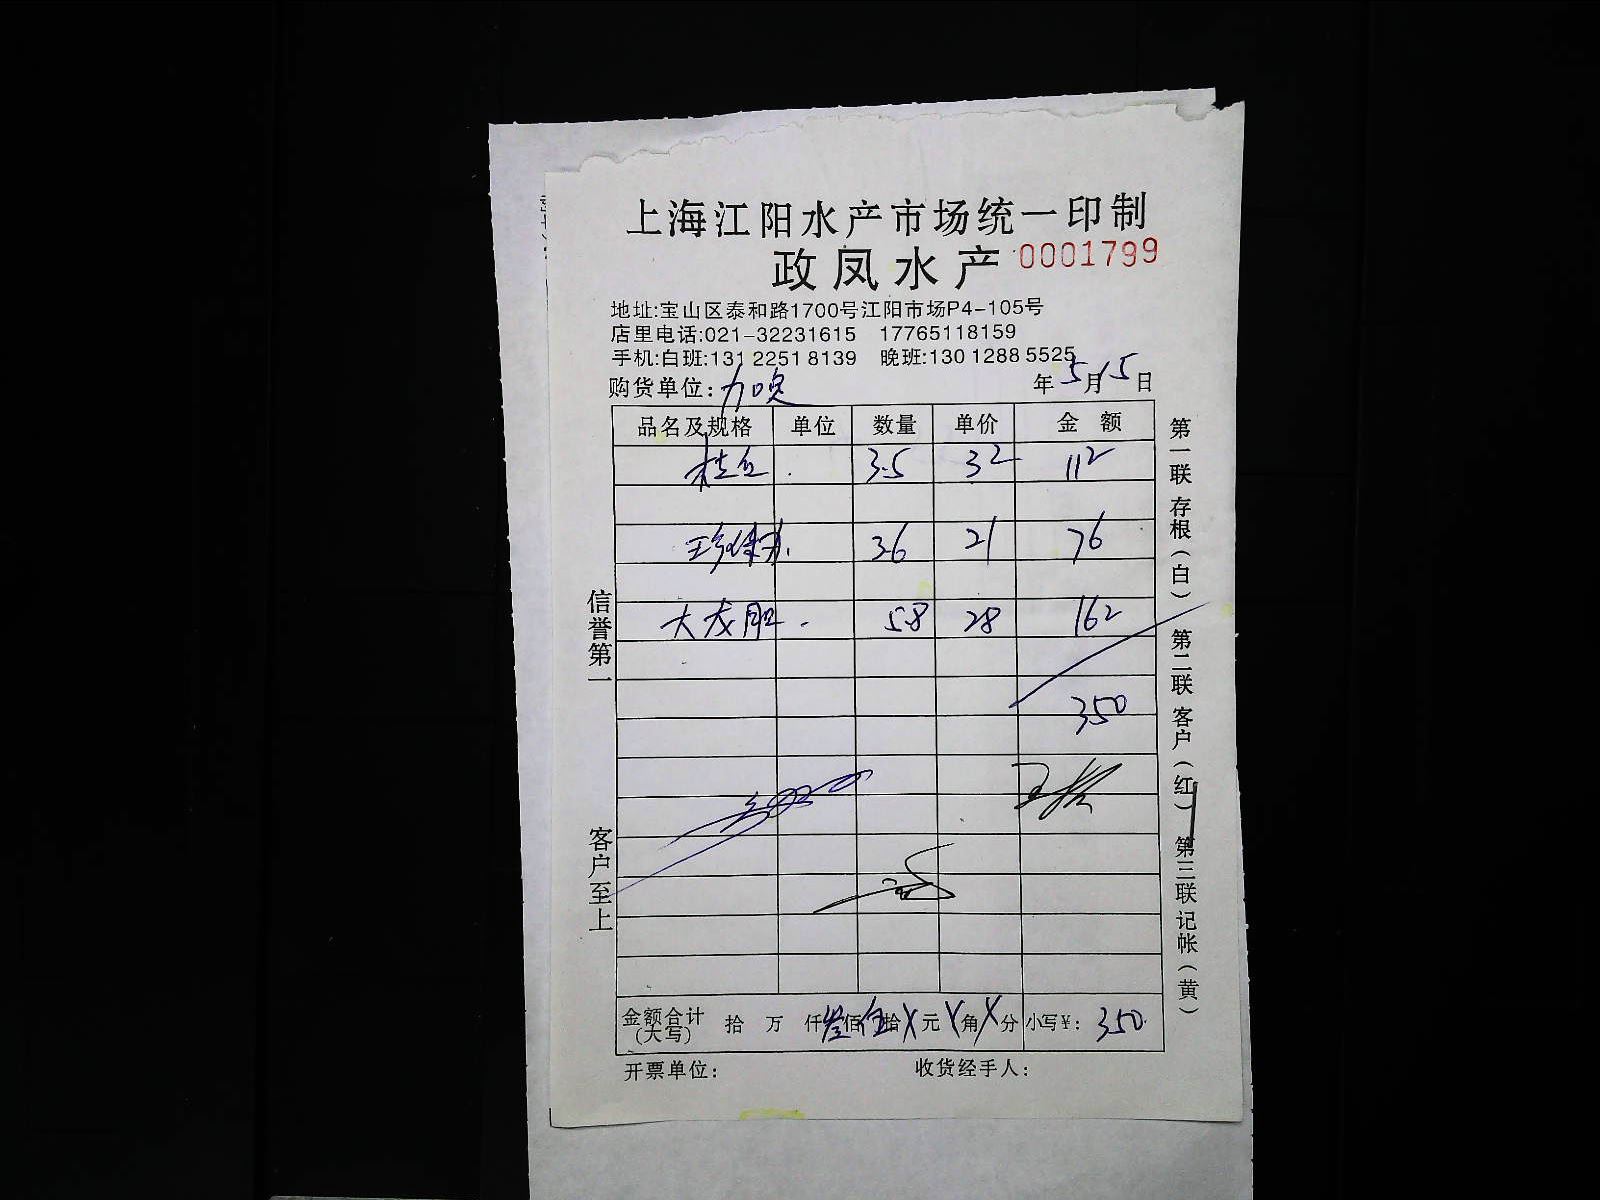 上海江阳水产市场统一印制
政凤水产 0001799
地址:宝山区泰和路1700号江阳市场P4-105号
店里电话:021-32231615 17765118159
手机:白班:131 2251 8139 晚班:130 1288 5525
购货单位: 年5月15日
品名及规格 单位 数量 单价 金额
桂鱼 3.5 32 112
珍 36 21 76
大龙胆 58 28 162
350
金额合计(大写) 拾 万 仟叁佰伍拾X元X角X分 小写¥: 350
开票单位: 收货经手人:
信誉第一
客户至上
第一联存根(白) 第二联客户(红) 第三联记帐(黄)